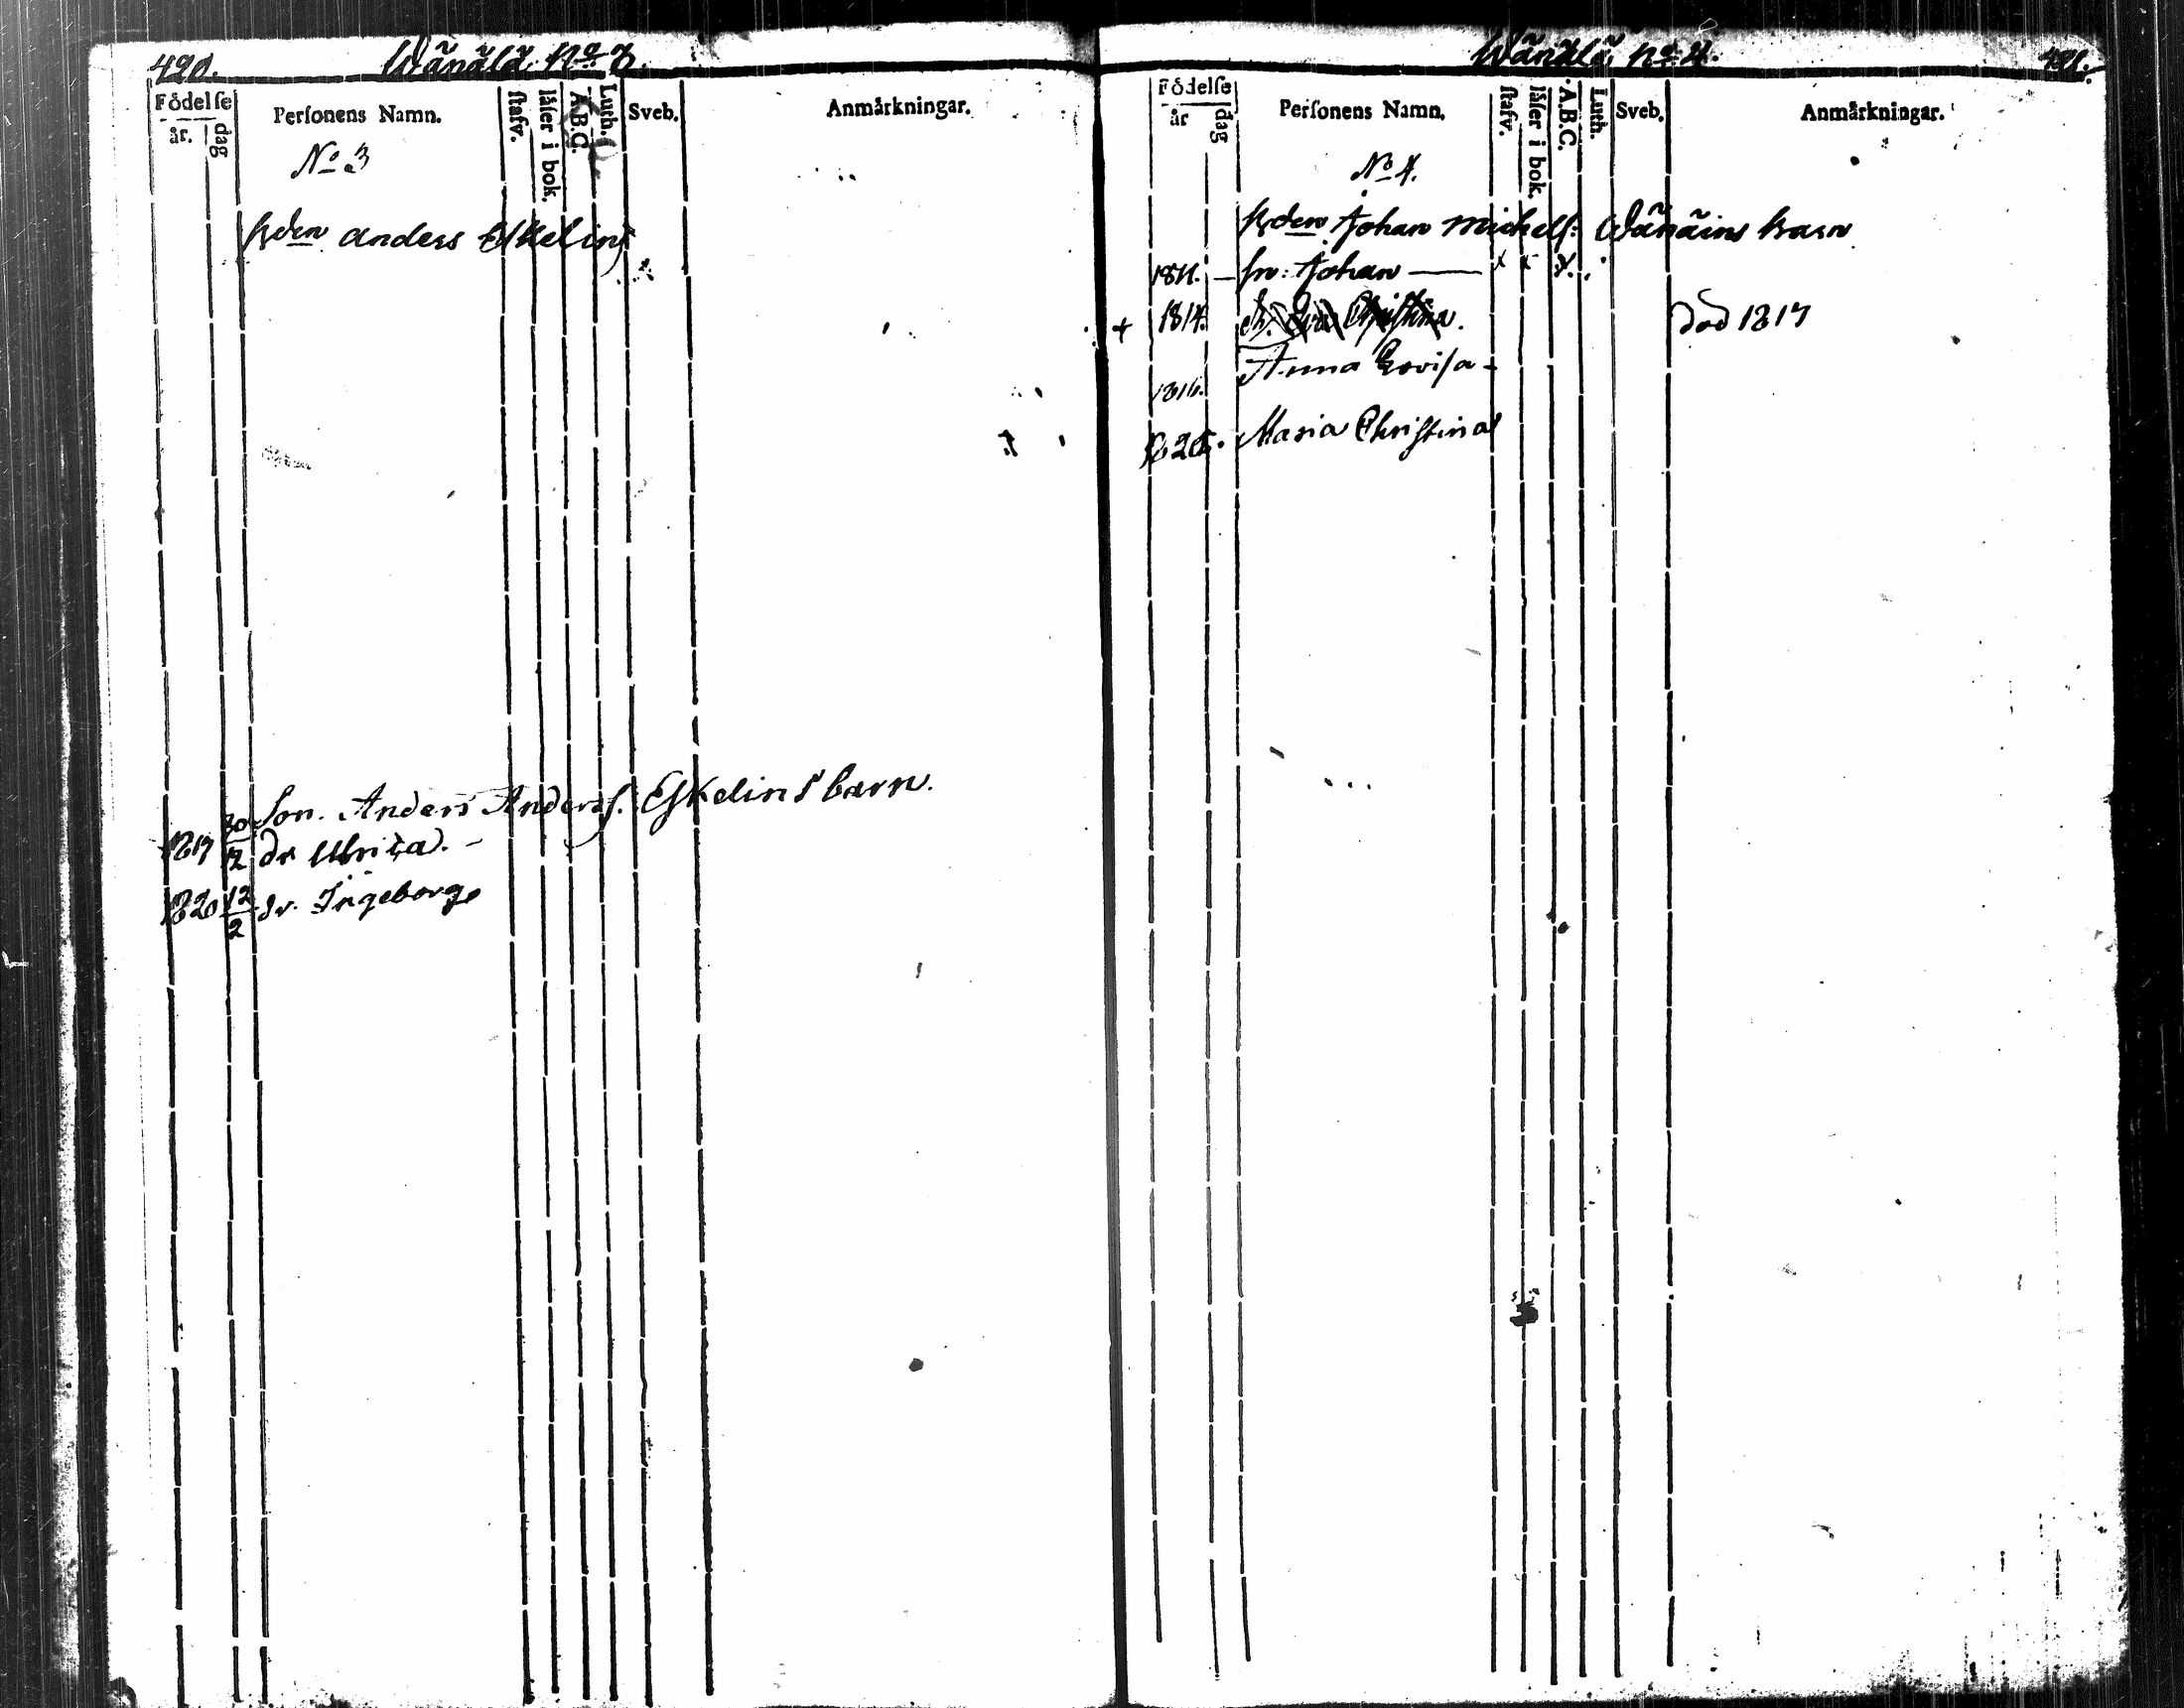 490.
Wänälä No 3.
Födelſe
år.
dag
Perſonens Namn.
ſtafv.
läſer i bok.
A.B.C.
Luth.
Sveb.
Anmärkningar.
No 3
Bden Anders Eskelins
Son. Anders Anderſ. Eſkelins barn.
1817 30/12 dr Ulrica.
1820 12/2 dr. Ingeborg
Wänälä No 4.
491.
Födelſe
år
dag
Perſonens Namn.
ſtafv.
läſer i bok.
A.B.C.
Luth.
Sveb.
Anmärkningar.
No 4.
Bden Johan Michelſ: Wänäins barn
1811. — ſn: Johan — x x x
+ 1814. Christina. död 1817
1816. Anna Lovisa -
1820. Maria Chriſtina